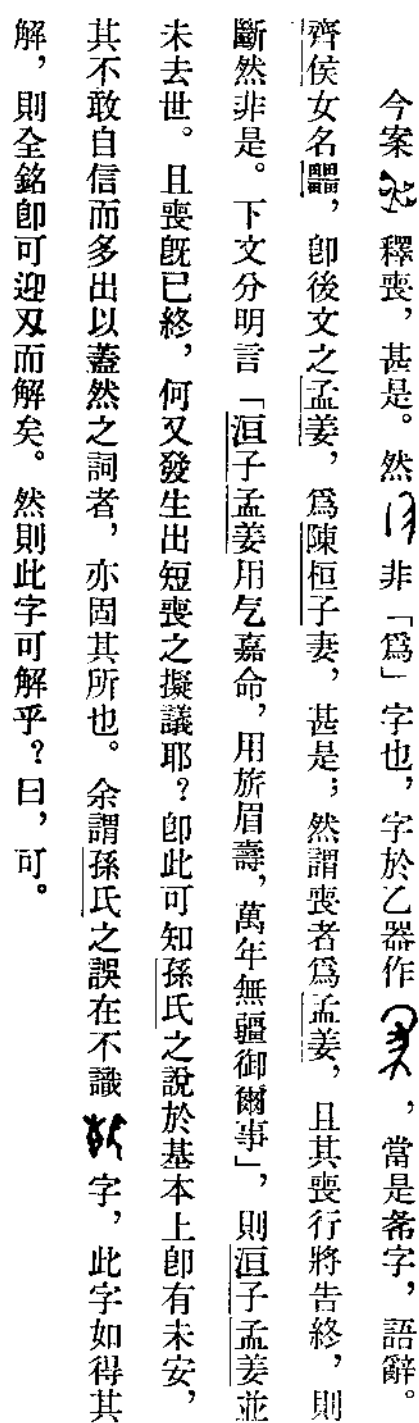 今案釋喪,甚是。然非「爲」字也,字於乙器作,當是字,語辭。
齊侯女名,卽後文之孟姜,爲陳桓子妻,甚是;然謂喪者爲孟姜,且其喪行將告終,則
斷然非是。下文分明言「洹子孟姜用乞嘉命,用旂眉壽,萬年無疆御爾事」,則洹子孟姜並
未去世。且喪旣已終,何又發生出短喪之擬議耶?卽此可知孫氏之說於基本上卽有未安,
其不敢自信而多出以蓋然之詞者,亦固其所也。余謂孫氏之誤在不識字,此字如得其
解,則全銘卽可迎刃而解矣。然則此字可解乎?曰,可。